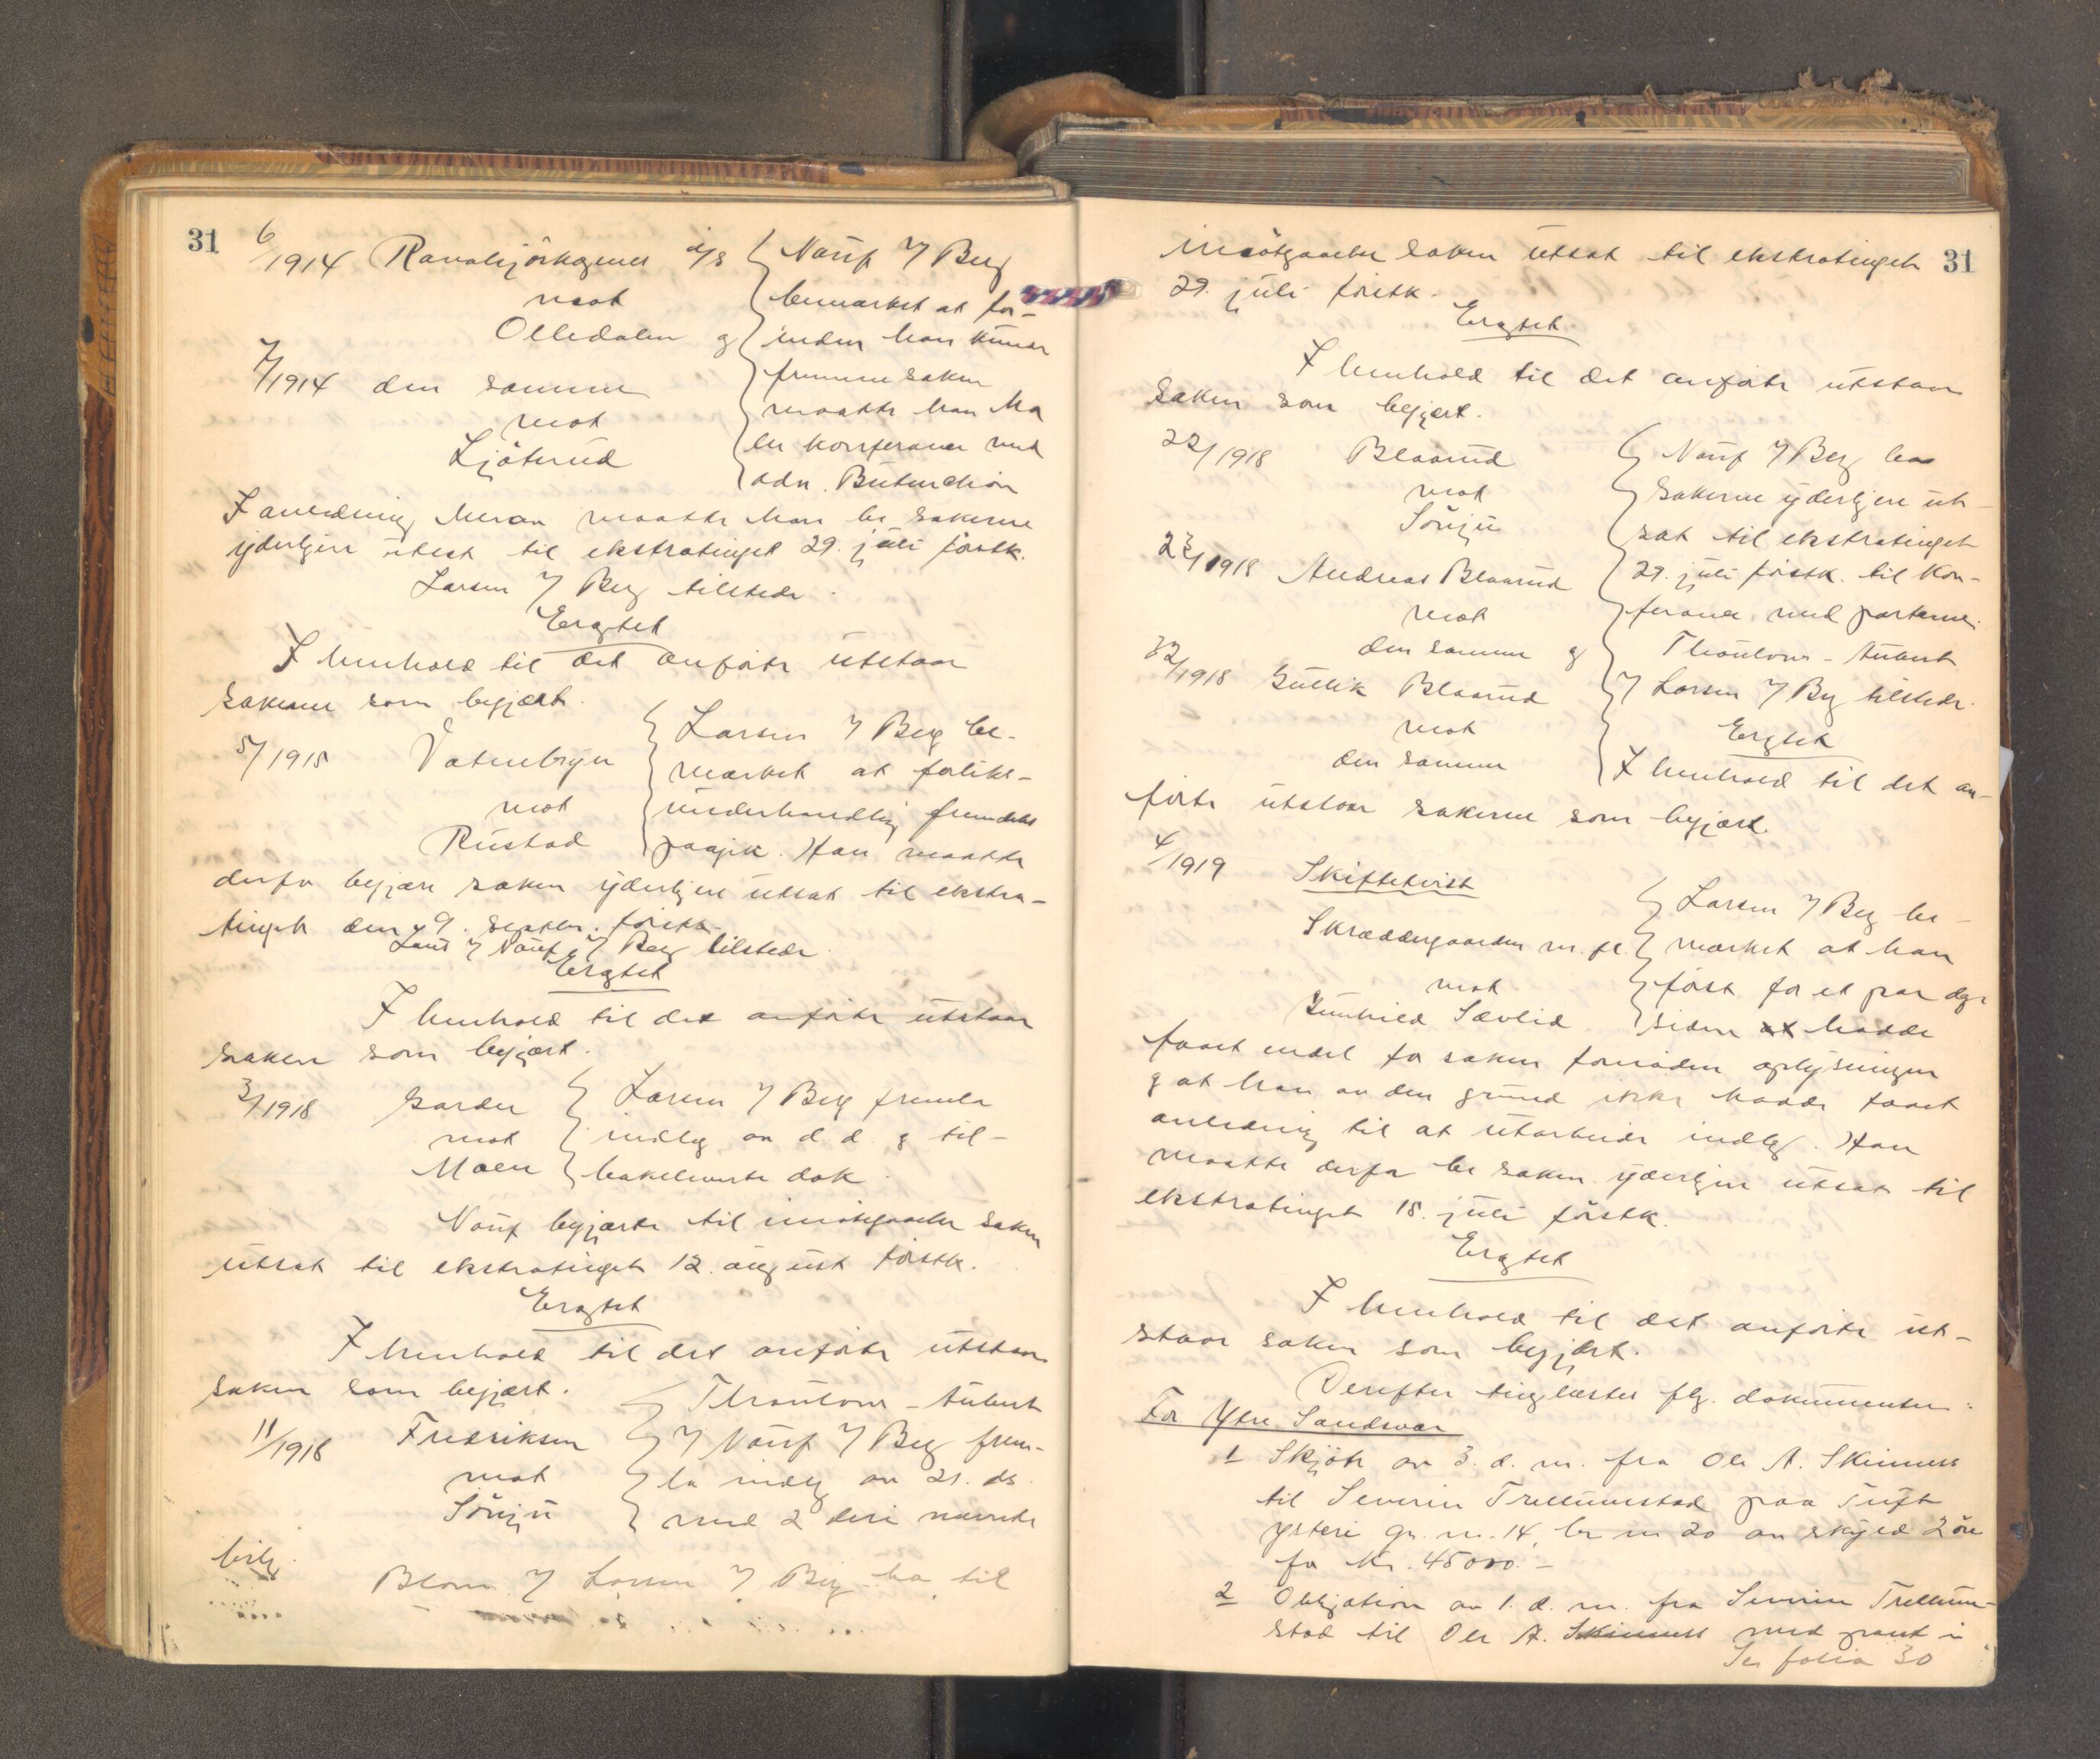 31
6/1914 Ravalsjöskogenes a/s
mot
Olledalen og
7/1914 den samme
mot
Ljøterud
Nauf v/ Berg
bemærket at for-
inden han kunde
fremme saken
maatte han ha
en konferanse med
adv.
I anledning herav maatte han be sakerne
yderligere utsat til ekstratinget 29. juli førstk.
Larsen v/ Berg tilstede.
Eragtet
I henhold til det anførte utstaar
sakerne som begjært.
5/1915 Vatnebryn
mot
Rustad
Larsen v/ Berg be-
mærket at forliks-
underhandling fremdeles
paagik. Han maatte
derfor begjære saken yderligere utsat til ekstra-
tinget den 9. septbr. førstk.
v/ Nauf v/ Berg tilstede.
Eragtet
I henhold til det anførte utstaar
saken som begjært.
3/1918 Garder
mot
Moen
Larsen v/ Berg fremla
indlæg av d. d. og til-
bakeleverte dok.
Nauf begjærte til imøtegaaelse saken
utsat til ekstratinget 12. august førstk.
Eragtet
I henhold til det anførte utstaar
saken som begjært.
11/1918 Fredriksen
mot
Sönju
Thaulow-Aubert
v/ Nauf v/ Berg frem-
la indlæg av 21. ds.
med 2 deri nævnte
bilag.
Blom v/ Larsen v/ Berg ba til
31
imøtgaaelse saken utsat til ekstratinget
29. juli førstk.
Eragtet
I henhold til det anførte utstaar
saken som begjært.
22/1918 Blaarud
mot
Sönju
23/1918 Andreas Blaarud
mot
den samme og
32/1918 Gullik Blaarud
mot
den samme
Nauf v/ Berg ba
sakerne yderligere ut-
sat til ekstratinget
29. juli førstk. til kon-
feranse med parterne.
Thaulow-Aubert
v/ Larsen v/ Berg tilstede.
Eragtet
I henhold til det an-
førte utstaar sakerne som begjært.
4/1919 Skiftetvist
Skræddergaarden m. fl.
mot
Gunhild Sævlid
Larsen v/ Berg be-
mærket at han
først for et par dage
siden at hadde
faaet endel for saken fornøden oplysninger
og at han av den grund ikke hadde faaet
anledning til at utarbeide indlæg. Han
maatte derfor be saken yderligere utsat til
ekstratinget 15. juli førstk.
Eragtet
I henhold til det anførte ut-
staar saken som begjært.
Derefter tinglæstes flg. dokumenter:
For Ytre Sandsvær
1 Skjøte av 3. d. m. fra Ole A. Skinnes
til Severin Trellumstad paa Tuft
ysteri gr. nr. 14, br. nr. 20 av skyld 2 øre
for kr. 45000.-
2 Obligation av 1. d. m. fra Severin Trellum-
stad til Ole A. Skinnes med pant i
Se folio 30